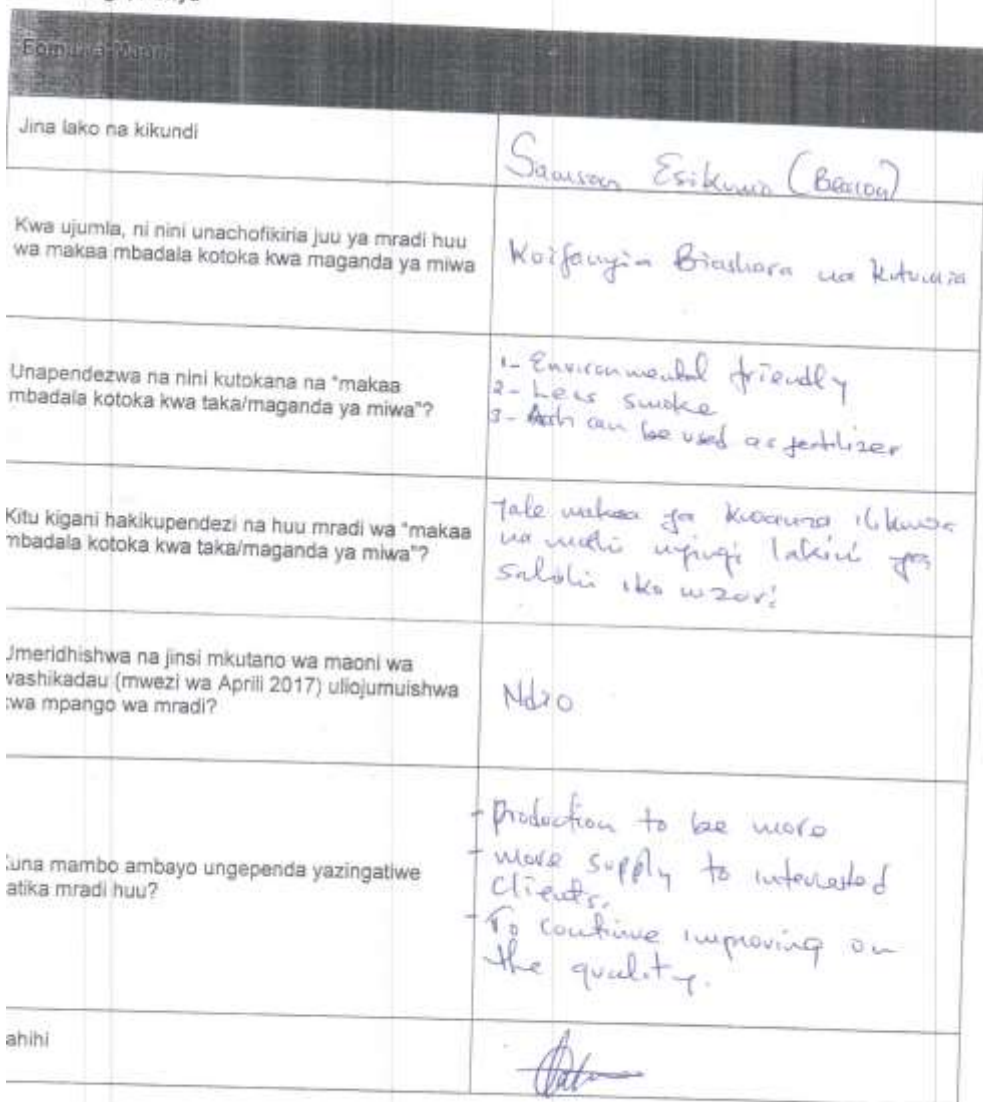 Fomu ya Maoni
Jina lako na kikundi
Samson Esikuma (Beacon)
Kwa ujumla, ni nini unachofikiria juu ya mradi huu
wa makaa mbadala kotoka kwa maganda ya miwa
Koifanyia Biashara na kutumia
Unapendezwa na nini kutokana na "makaa
mbadala kotoka kwa taka/maganda ya miwa"?
1- Environmental friendly
2- Less smoke
3- Ash can be used as fertilizer
Kitu kigani hakikupendezi na huu mradi wa "makaa
mbadala kotoka kwa taka/maganda ya miwa"?
Yale makaa ya kwanza ilikuwa
na moshi mjingi lakini ya
saiki iko mzuri
Umeridhishwa na jinsi mkutano wa maoni wa
washikadau (mwezi wa Aprili 2017) uliojumuishwa
kwa mpango wa mradi?
Ndio
Kuna mambo ambayo ungependa yazingatiwe
katika mradi huu?
- Production to be more
- more supply to interested
clients.
- To continue improving on
the quality.
ahihi